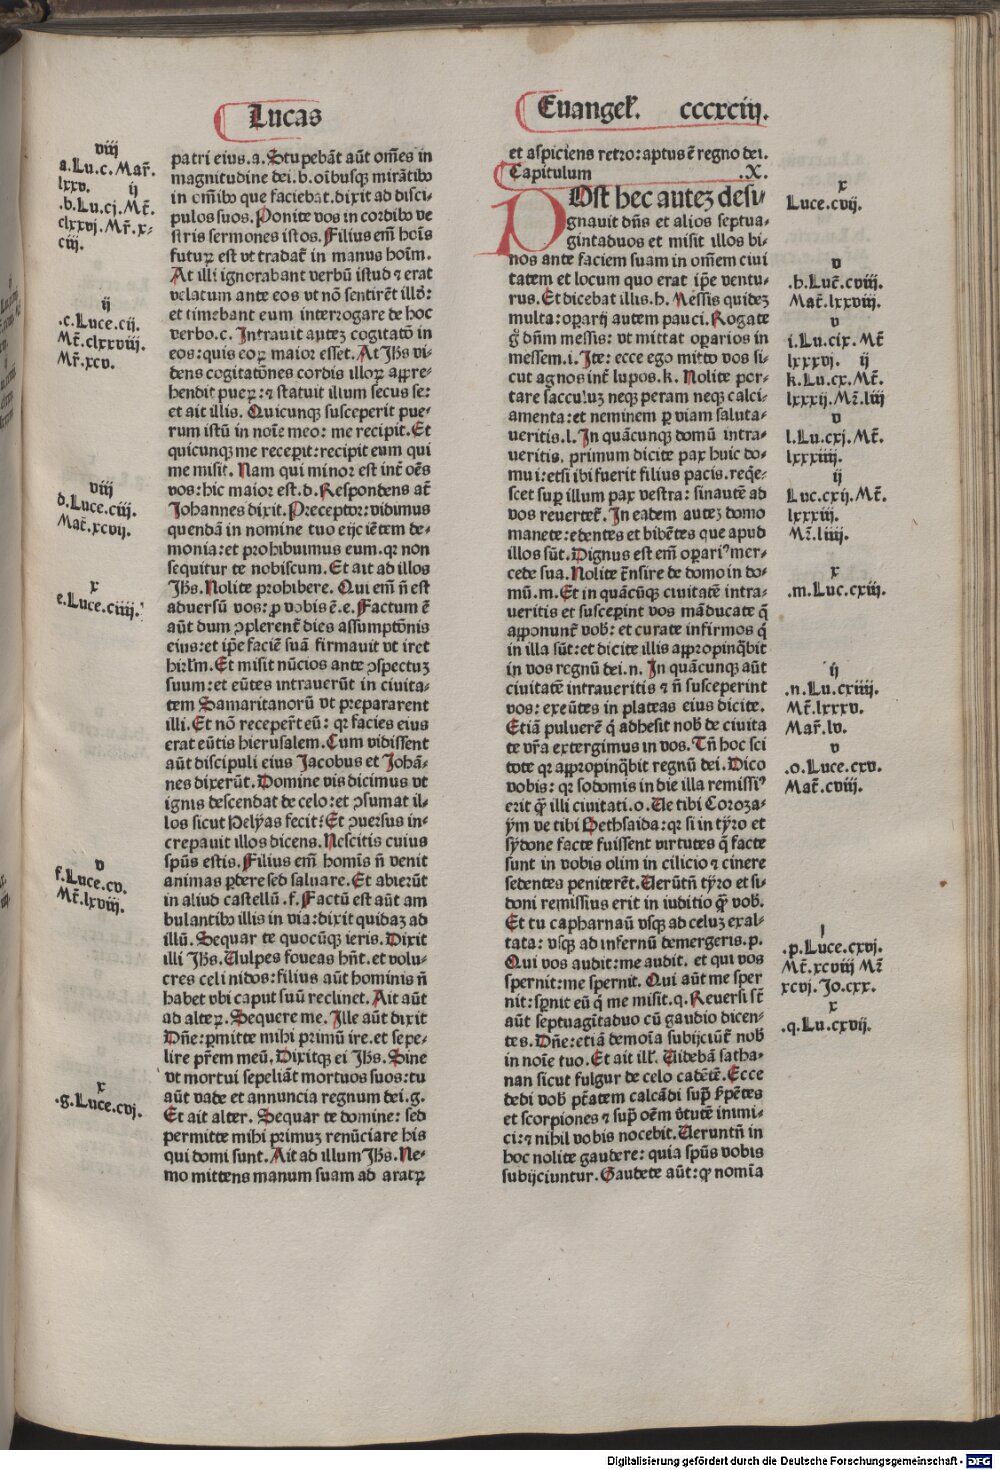 Lucas
Euangeł. cccxciij.
viij
a.Lu.c. Mar̃.
lxxv. ij
.b.Lu.cj. Mt̃.
clxxvj. Mr̃. x-
ciij.
ij
.c.Luce.cij.
Mt̃.clxxviij.
Mr̃.xcv.
viij
d.Luce.ciij.
Mat̃.xcvij.
x
e.Luce.ciiij.
v
f.Luce.cv.
Mt̃.lxviij.
x
.g.Luce.cvj.
patri eius.a.Stupebāt aūt om̄es in
magnitudine dei.b.oībusqꝫ mirātibꝰ
in om̄ibꝰ que faciebat.dixit ad disci-
pulos suos. Ponite vos in cordibꝰ ve
stris sermones istos. Filius em̄ hoīs
futurꝝ est vt tradat̃ in manus hoīm.
At illi ignorabant verbū istud ⁊ erat
velatum ante eos vt nō sentirēt illd̓:
et timebant eum interrogare de hoc
verbo.c. Intrauit autez cogitatō in
eos: quis eoꝝ maior esset. At Jħs vi-
dens cogitatōnes cordis illoꝝ appre-
hendit pueꝝ: ⁊ statuit illum secus se:
et ait illis. Quicunqꝫ susceperit pue-
rum istū in noīe meo: me recipit. Et
quicunqꝫ me receꝑit: recipit eum qui
me misit. Nam qui minor est int̃ oēs
vos: hic maior est.d. Respondens at̃
Johannes dixit. Preceptor: vidimus
quendā in nomine tuo eijciētem de-
monia: et prohibuimus eum. qꝛ non
sequitur te nobiscum. Et ait ad illos
Jħs. Nolite prohibere. Qui em̄ n̄ est
aduersū vos: ꝓ vobis ē.e. Factum ē
aūt dum ꝯplerent̃ dies assumptōnis
eius: et ip̄e faciē suā firmauit vt iret
hirlm̄. Et misit nūcios ante ꝯspectuz
suum: et eūtes intrauerūt in ciuita-
tem Samaritanorū vt prepararent
illi. Et nō receper̃t eū: qꝛ facies eius
erat eūtis hierusalem. Cum vidissent
aūt discipuli eius Jacobus et Johā-
nes dixerūt. Domine vis dicimus vt
ignis descendat de celo: et ꝯsumat il-
los sicut Helyas fecit: Et ꝯuersus in-
crepauit illos dicens. Nescitis cuius
sp̄us estis. Filius em̄ homīs n̄ venit
animas ꝑdere sed saluare. Et abierūt
in aliud castellū .f. Factū est aūt am
bulantibꝰ illis in via: dixit quidaz ad
illū. Sequar te quocūqꝫ ieris. Dixit
illi Jħs. Vulpes foueas hn̄t. et volu-
cres celi nidos: filius aūt hominis n̄
habet vbi caput suū reclinet. Ait aūt
ad alteꝝ. Sequere me. Ille aūt dixit
Dn̄e: ꝑmitte mihi primū ire. et sepe-
lire pr̄em meū. Dixitqꝫ ei Jħs. Sine
vt mortui sepeliāt mortuos suos: tu
aūt vade et annuncia regnum dei.g.
Et ait alter. Sequar te domine: sed
permitte mihi primuz renūciare his
qui domi sunt. Ait ad illum Jħs. Ne-
mo mittens manum suam ad aratꝝ
et aspiciens retro: aptus ē regno dei.
Capitulum .X.
POst hec autez desi-
gnauit dn̄s et alios septua-
gintaduos et misit illos bi-
nos ante faciem suam in om̄em ciui
tatem et locum quo erat ip̄e ventu-
rus. Et dicebat illis.h. Messis quidez
multa: oꝑarij autem pauci. Rogate
g̊ dn̄m messis: vt mittat oꝑarios in
messem.i. Ite: ecce ego mitto vos si-
cut agnos int̃ lupos.k. Nolite por-
tare sacculuz neqꝫ peram neqꝫ calci-
amenta: et neminem ꝑ viam saluta-
ueritis.l. In quācunqꝫ domū intra-
ueritis. primum dicite pax huic do-
mui: etsi ibi fuerit filius pacis. reqͥe-
scet suꝑ illum pax vestra: sinautē ad
vos reuertet̃. In eadem autez domo
manete: edentes et bibētes que apud
illos sūt. Dignus est em̄ oꝑariꝰ mer-
cede sua. Nolite t̃nsire de domo in do-
mū.m. Et in quācūqꝫ ciuitatē intra-
ueritis et susceꝑint vos māducate q̄
apponunt̃ vob̓: et curate infirmos qͥ
in illa sūt: et dicite illis appropinqͣbit
in vos regnū dei.n. In quācunqꝫ aūt
ciuitatē intraueritis ⁊ n̄ susceperint
vos: exeūtes in plateas eius dicite.
Etiā puluerē qͥ adhesit nob̓ de ciuita
te vr̄a extergimus in vos. Tn̄ hoc sci
tote qꝛ appropinqͣbit regnū dei. Dico
vobis: qꝛ sodomis in die illa remissiꝰ
erit qͣꝫ illi ciuitati.o. Ve tibi Coroza-
ym ve tibi Bethsaida: qꝛ si in tyro et
sydone facte fuissent virtutes q̄ facte
sunt in vobis olim in cilicio ⁊ cinere
sedentes peniterēt. Uerūtn̄ tyro et si-
doni remissius erit in iuditio qͣꝫ vob̓.
Et tu capharnaū vsqꝫ ad celuz exal-
tata: vsqꝫ ad infernū demergeris.p.
Qui vos audit: me audit. et qui vos
spernit: me spernit. Qui aūt me sper
nit: sꝑnit eū qͥ me misit.q. Reuersi st̄
aūt septuagītaduo cū gaudio dicen-
tes. Dn̄e: etiā demoīa subijciūt̃ nob̓
in noīe tuo. Et ait ill̓. Videbā satha-
nan sicut fulgur de celo cadētē. Ecce
dedi vob̓ ptātem calcādi suꝑ ẜpētes
et scorpiones ⁊ suꝑ oēm v̓tutē inimi-
ci: ⁊ nihil vobis nocebit. Ueruntn̄ in
hoc nolite gaudere: quia sp̄us vobis
subijciuntur. Gaudete aūt: qꝙ nomīa
x
Luce.cvij.
v
.h.Luc̄.cviij.
Mat̃.lxxviij.
v
i.Lu.cix. Mt̃
lxxxvj. ij
k.Lu.cx. Mt̃.
lxxxij. Mꝛ̃.liij
v
l.Lu.cxj. Mt̃.
lxxxiiij.
ij
Luc.cxij. Mt̃.
lxxxiij.
Mꝛ̃.liiij.
x
.m.Luc.cxiij.
ij
.n.Lu.cxiiij.
Mt̃.lxxxv.
Mar̃.lv.
v
.o.Luce.cxv.
Mat̃.cviij.
j
.p.Luce.cxvj.
Mt̃.xcviij Mꝛ̃
xcvj. Jo.cxx.
x
.q.Lu.cxvij.
Digitalisierung gefördert durch die Deutsche Forschungsgemeinschaft - DFG